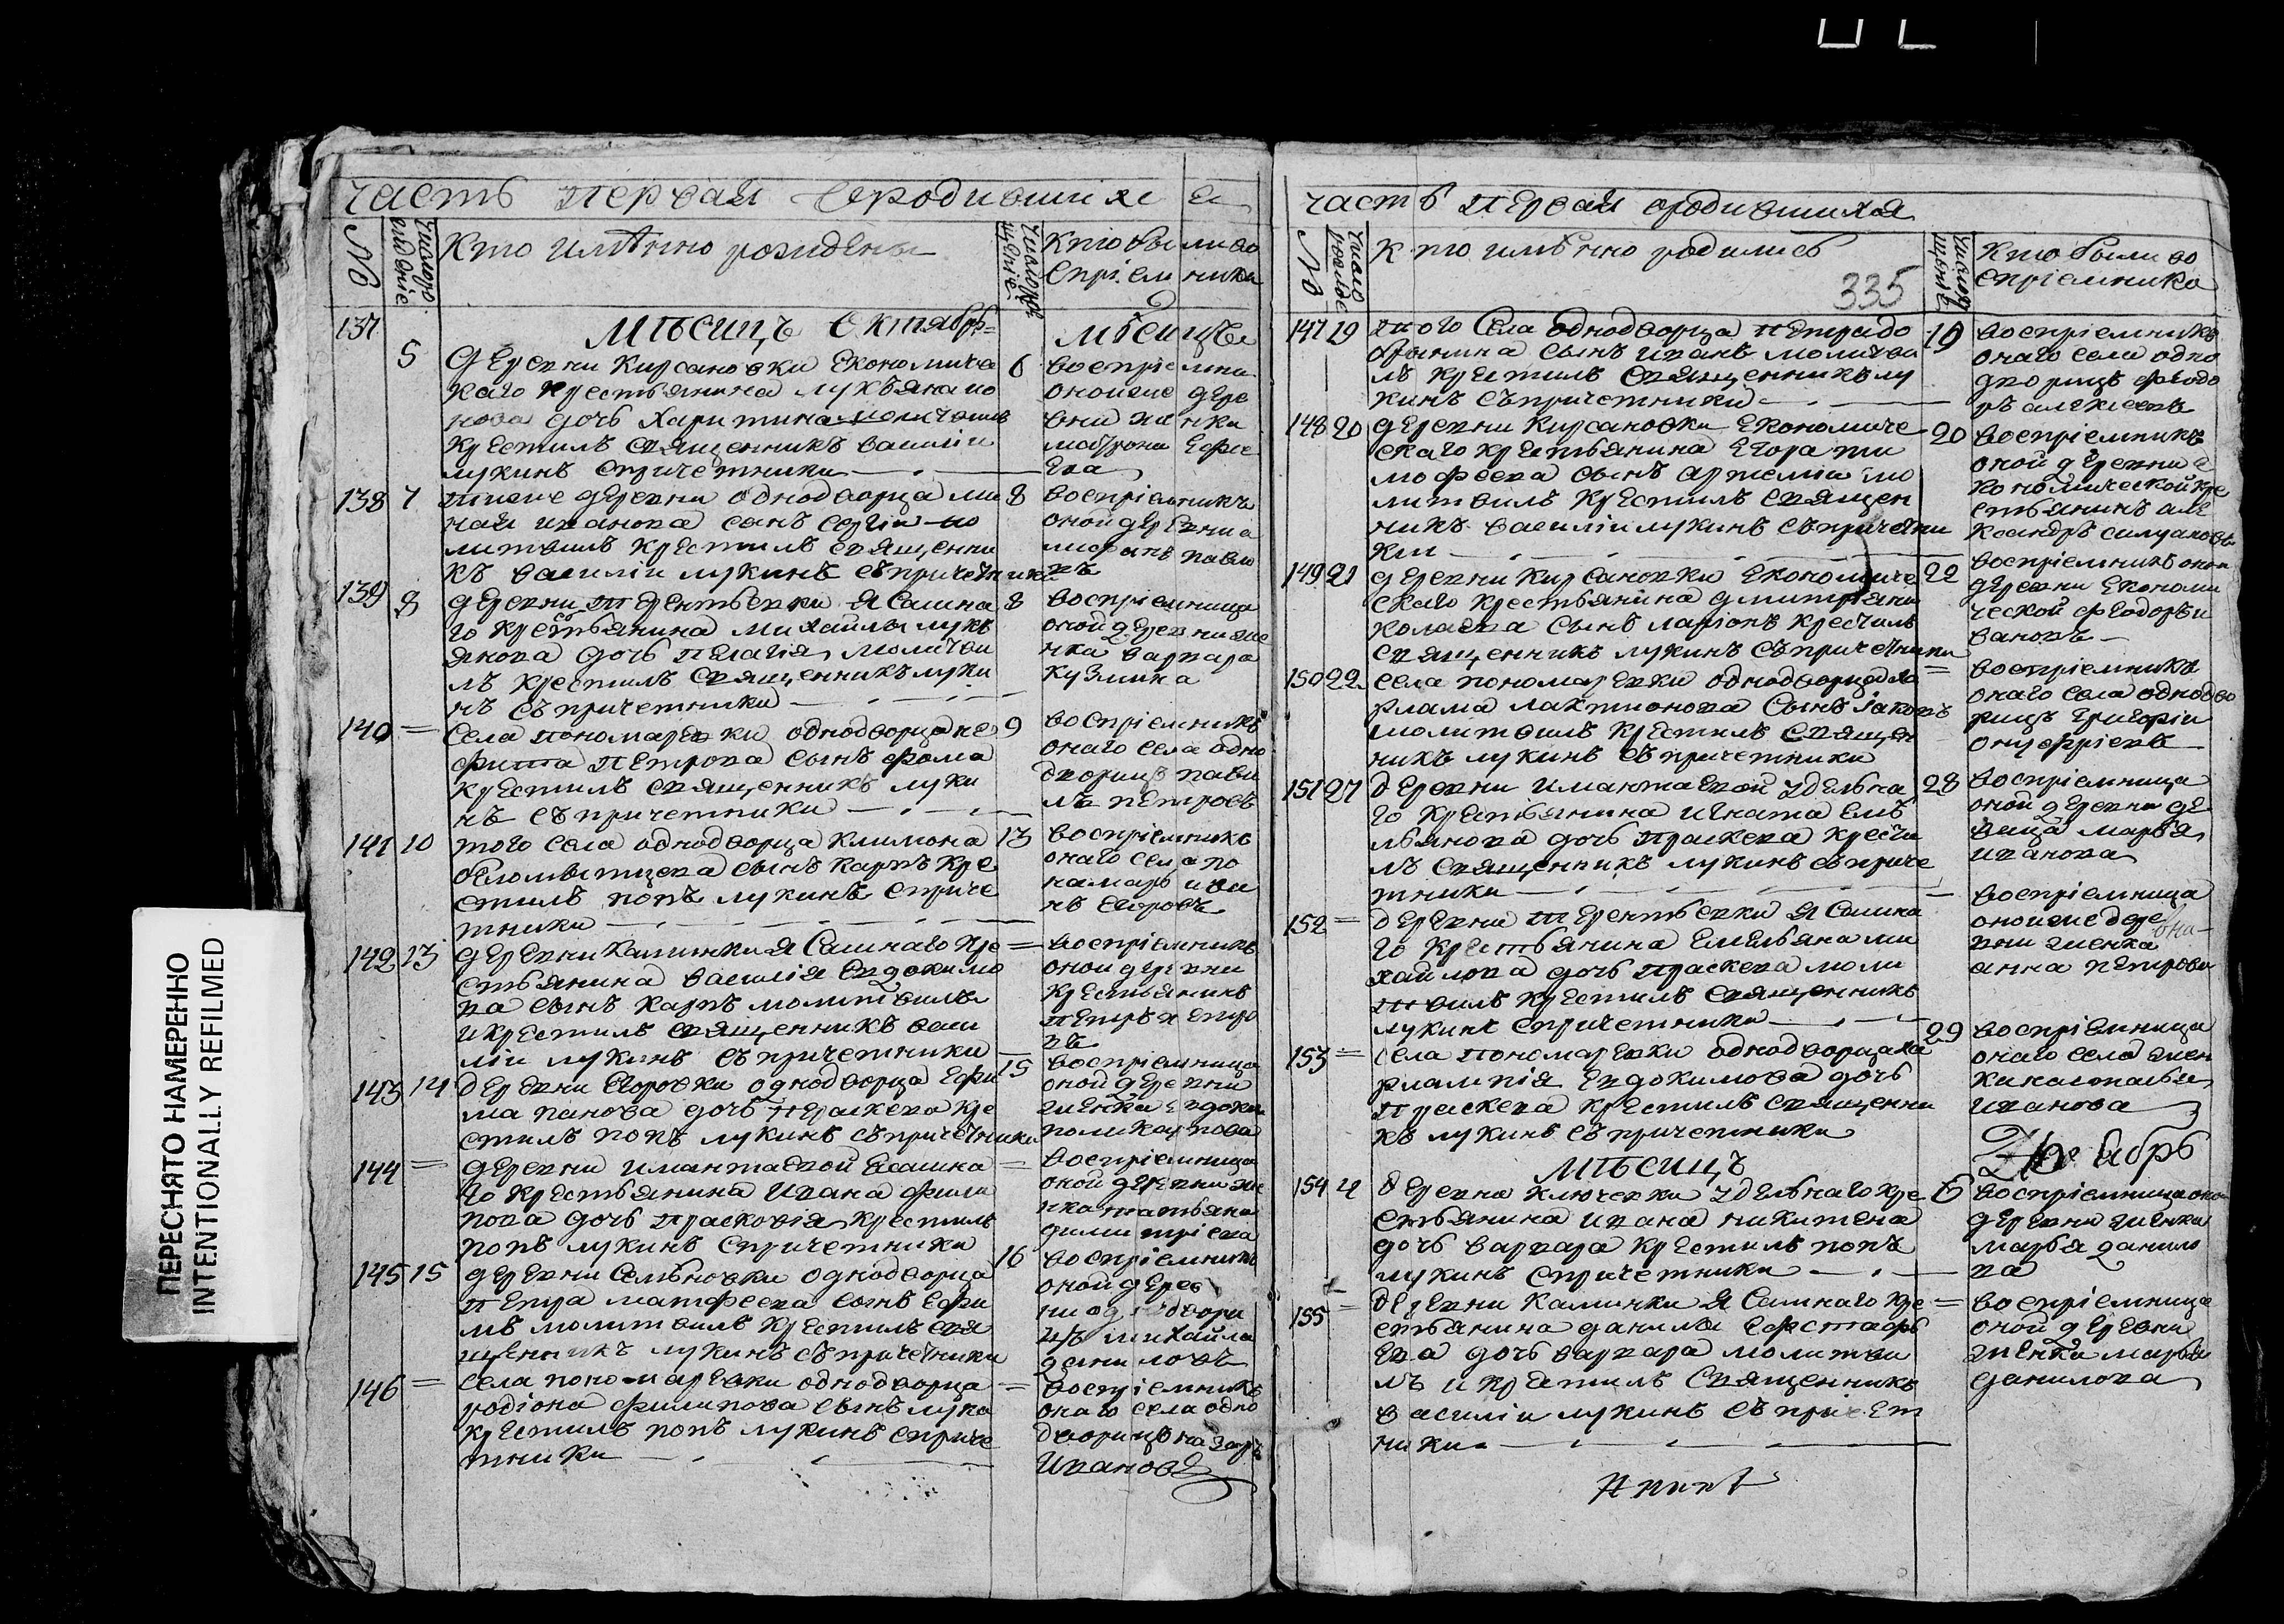 ПЕРЕСНЯТО НАМЕРЕННО
INTENTIONALLY REFILMED
часть первая ородившихся
№
Кто имѣнно рождены
Кто были во
спріемники
137
мѣсицъ октябрь
мѣсицъ
5
деревни Кирсановки Економиче
6
каго крестьянина лукъяна ио
нова дочь Харитина молитвилъ
крестилъ священникъ василіи
лукинъ спричетники
воспріемни
оной же дере
вни жинка
матрона Ефре
ева
138 7
деревни однодворца ми
8
ная иванова сынъ сергіи мо
литвилъ крестилъ священни
къ василіи лукинъ съпричетники
воспріемникъ
оной деревни а
139 8
деревни терентьевки ясашна
8
го крестьянина михаилы лукъ
янова дочь пелагія молитви
лъ крестилъ священникъ луки
нъ съпричетники
воспріемница
оной деревни же
нка варвара
кузмина
140 =
села пономаревки однодворца не
9
фита петрова сынъ фома
крестилъ священникъ луки
нъ съпричетники
воспріемникъ
онаго села одно
дворицъ паве
лъ петровъ
141 10
того села однодворца климона
13
сынъ карпъ кре
стилъ попъ лукинъ спричe
тники
воспріемникъ
онаго села по
намарь ива
нъ Егоровъ
142 13
деревни калинки ясашнаго кре
=
стьянина василія евдокимо
ва сынъ карпъ молитвилъ
и крестилъ священникъ васи
ліи лукинъ съпричетники
воспріемникъ
оной деревни
крестьянинъ
петръ петро
въ
143 14
деревни Егоровки однодворца Ефи
15
ма панова дочь параскева кре
стилъ попъ лукинъ съпричетники
воспріемница
оной деревни
женка евдокия
поликарпова
144 =
деревни имантаевой ясашна
=
го крестьянина ивана фили
пова дочь прасковія крестилъ
попъ лукинъ спричетники
воспріемница
оной деревни же
нка татьяна
димитріева
145 15
деревни семеновки однодворца
16
петра матфеева сынъ Ефи
мъ молитвилъ крестилъ свя
щенникъ лукинъ съпричетники
воспріемникъ
оной дерев
ни однодвори
цъ михаила
даниловъ
146 =
села пономаревки однодворца
=
родіона филипова сынъ лука
крестилъ попъ лукинъ спричe
тники
воспріемникъ
онаго села одно
дворицъ назаръ
Ивановъ
часть первая ородившихся
№
кто имѣнно родились
335
Кто были во
спріемники
147 19
того села однодворца петра до
19
брынина сынъ иванъ молитви
лъ крестилъ священникъ лу
кинъ съпричетники
воспріемникъ
онаго села одно
дворицъ феодо
ръ алексеевъ
148 20
деревни кирсановки Економиче
20
скаго крестьянина Егора ти
мофеева сынъ артеміи мо
литвилъ крестилъ священ
никъ василіи лукинъ съпричетни
ки
воспріемникъ
оной деревни е
кономической кре
стьянинъ але
ксандръ силуановъ
149 21
деревни кирсановки Економиче
22
скаго крестьянина дмитрія ни
колаева сынъ ларіонъ крестилъ
священникъ лукинъ съпричетники
воспріемникъ оной
деревни Економи
ческой феодоръ и
вановъ
150 22
села пономаревки однодворца ва
=
рлама лактионова сынъ іаковъ
молитвилъ крестилъ священ
никъ лукинъ съпричетники
воспріемникъ
онаго села одн	одво
рицъ григоріи
онуфріевъ
151 27
деревни имантаевой удельна
28
го крестьянина игната емъ
льянова дочь праскева крести
лъ священникъ лукинъ съприче
тники
воспріемница
оной деревни де
вица марья
иванова
152 =
деревни терентьевки ясашна
го крестьянина емельяна ми
хаилова дочь праскева моли
твилъ крестилъ священникъ
лукинъ спричетники
воспріемница
оной же дере
вни женка
анна петрова
153 =
села пономаревки однодворца ха
29
рлампія евдокимова дочь
праскева крестилъ священни
къ лукинъ съпричетники
воспріемница
онаго села жен
ка настасья
иванова
мѣсицъ
154 4
деревни ключевки удельнаго кре
6
стьянина ивана никитена
дочь варвара крестилъ попъ
лукинъ спричетники
воспріемница оной
деревни женка
марья данило
ва
155 =
деревни калинки ясашнаго кре
=
стьянина данилы Ефстафь
ева дочь варвара молитви
лъ и крестилъ священникъ
василіи лукинъ съпричет
ники
воспріемница
оной деревни
женка марья
данилова